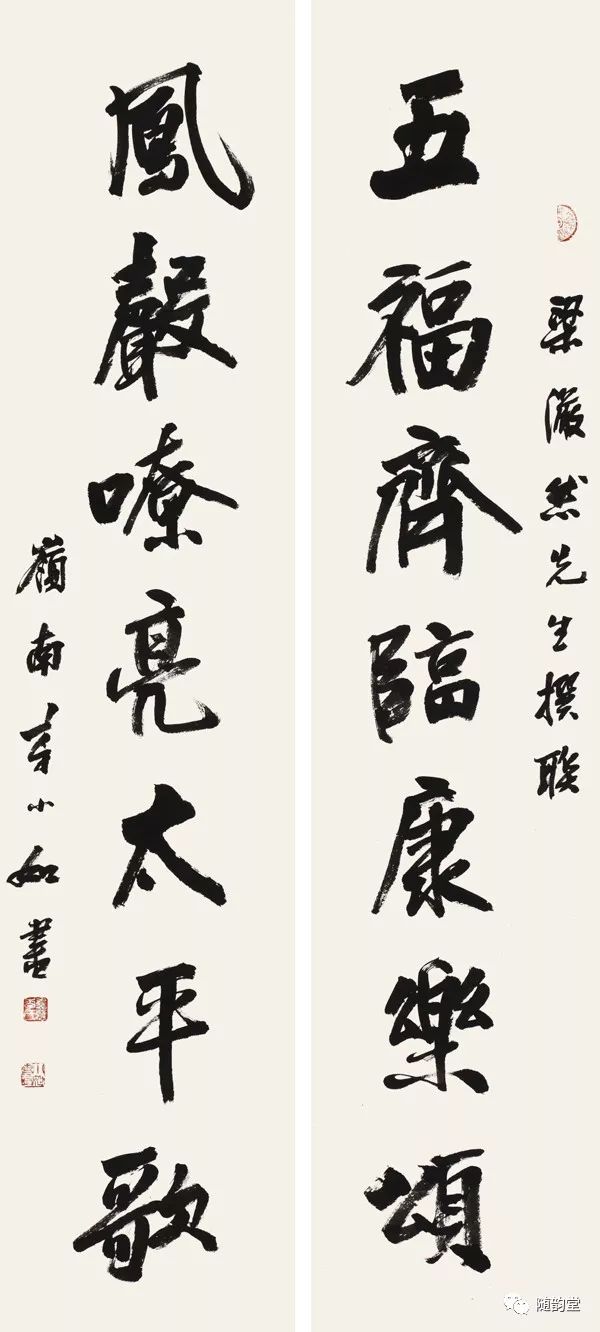 梁然先生撰聯
五福齊臨康樂頌
鳳聲嘹亮太平歌
嶺南小如書
随韵堂